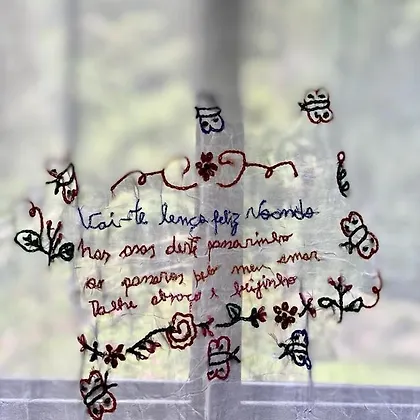 Vai-te lenço feliz Voando
nas asas deste passarinho
ao passares pelo meu amar
Dalhe abraço e beijinho